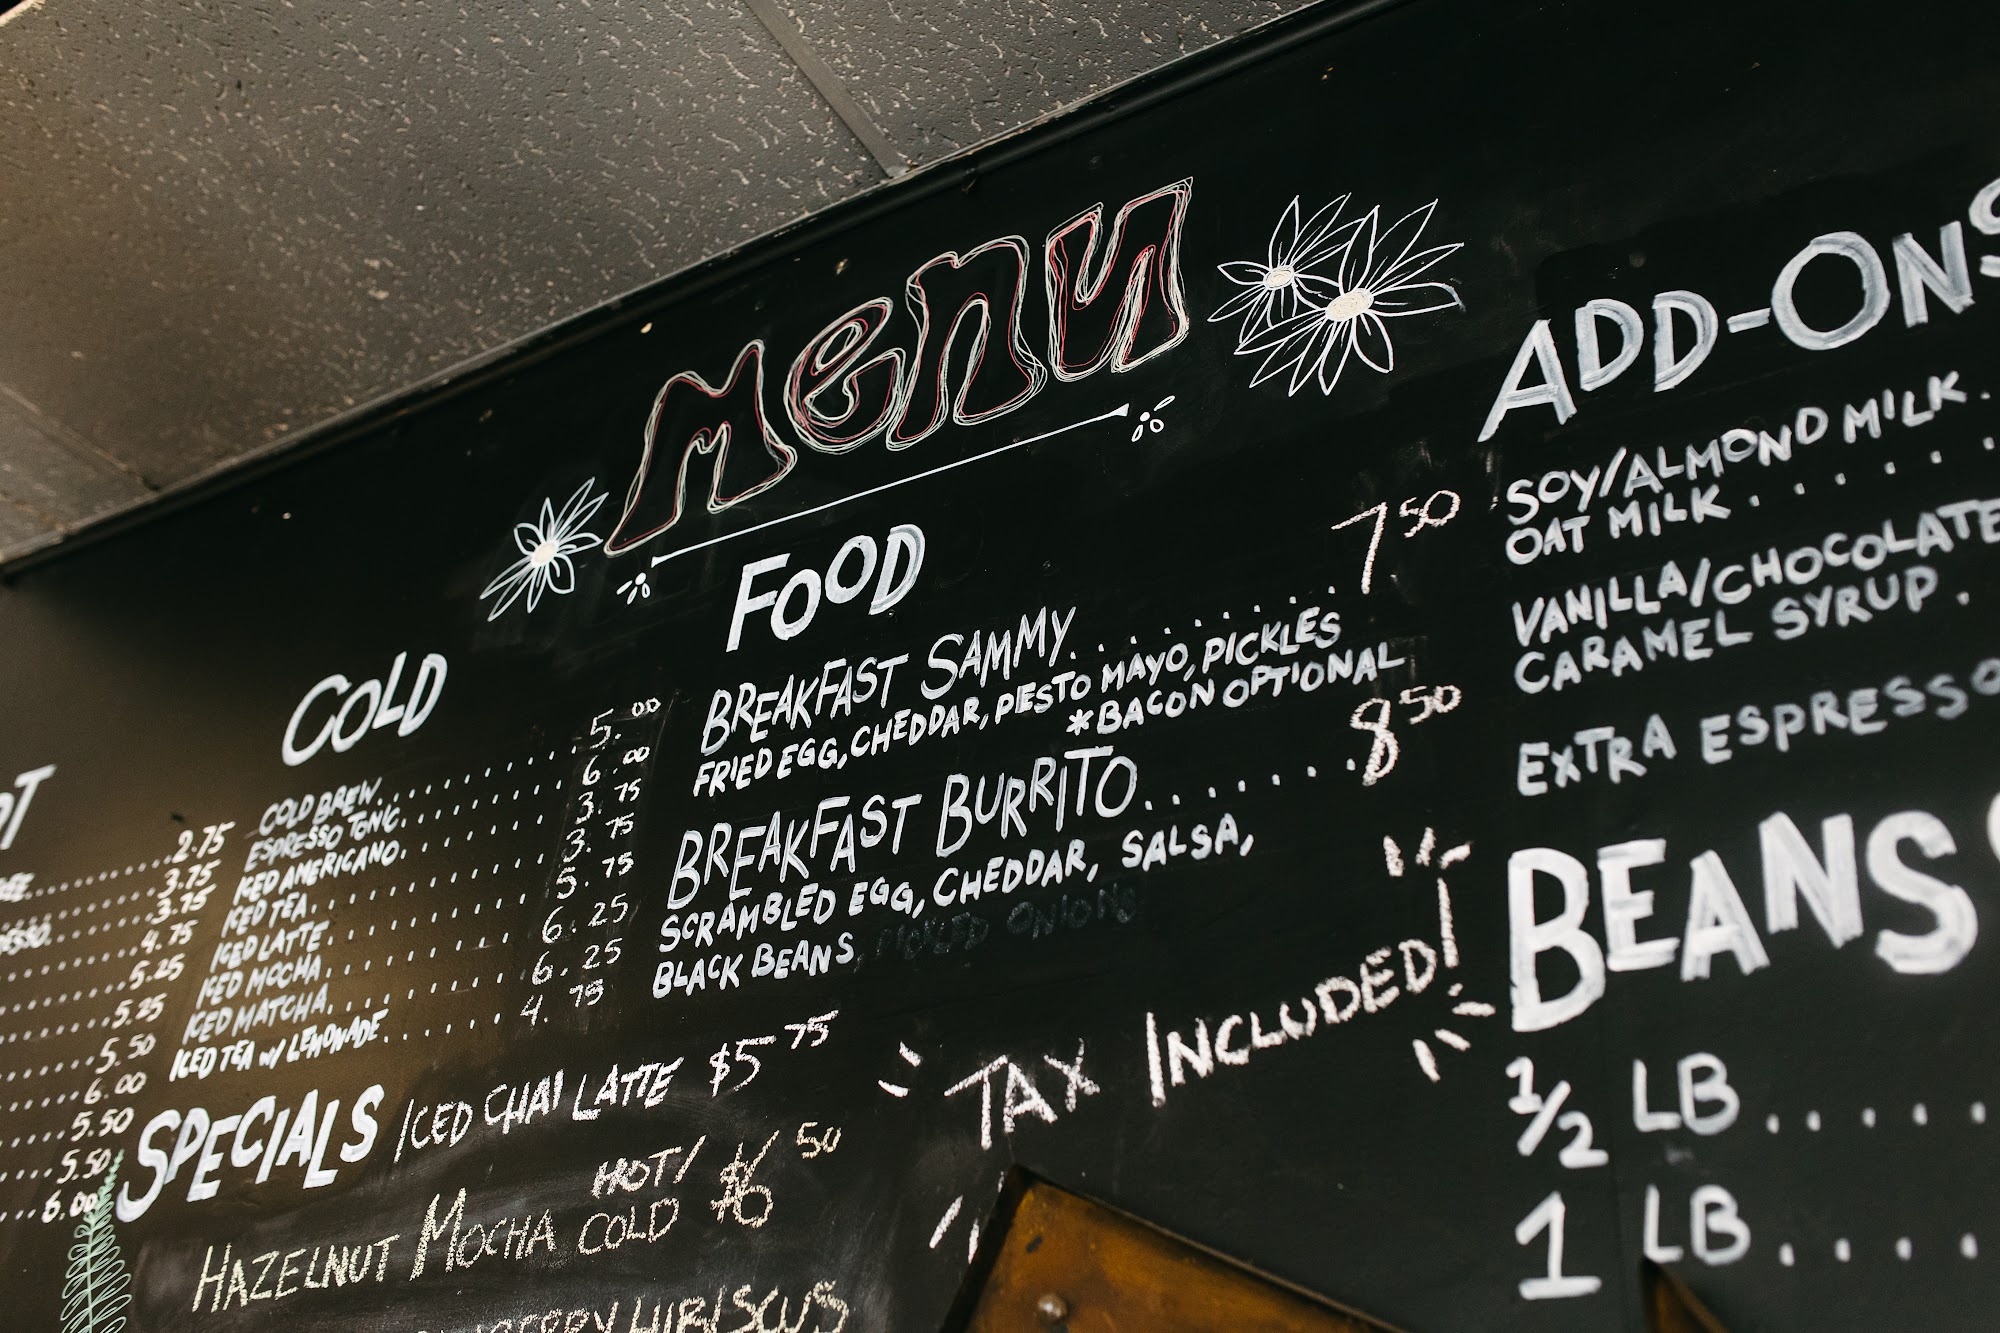 Menu
2.75
3.75
3.75
4.75
5.25
5.25
5.50
6.00
5.50
5.50
6.00
COLD
COLD BREW............5.00
ESPRESSO TONIC............6.00
ICED AMERICANO............3.75
ICED TEA............3.75
ICED LATTE............5.75
ICED MOCHA............6.25
ICED MATCHA............6.25
ICED TEA w/ LEMONADE......4.75
SPECIALS ICED CHAI LATTE $5 75
HOT/
HAZELNUT MOCHA COLD 50
HIBISCUS
FOOD
BREAKFAST SAMMY..........7 50
FRIED EGG, CHEDDAR, PESTO MAYO, PICKLES
*BACON OPTIONAL
BREAKFAST BURRITO.......8 50
SCRAMBLED EGG, CHEDDAR, SALSA,
BLACK BEANS, PICKLED ONIONS
TAX INCLUDED!
ADD-ONS
SOY/ALMOND MILK.
OAT MILK......
VANILLA/CHOCOLATE
CARAMEL SYRUP.
EXTRA ESPRESSO
BEANS
1/2 LB.....
1 LB.....